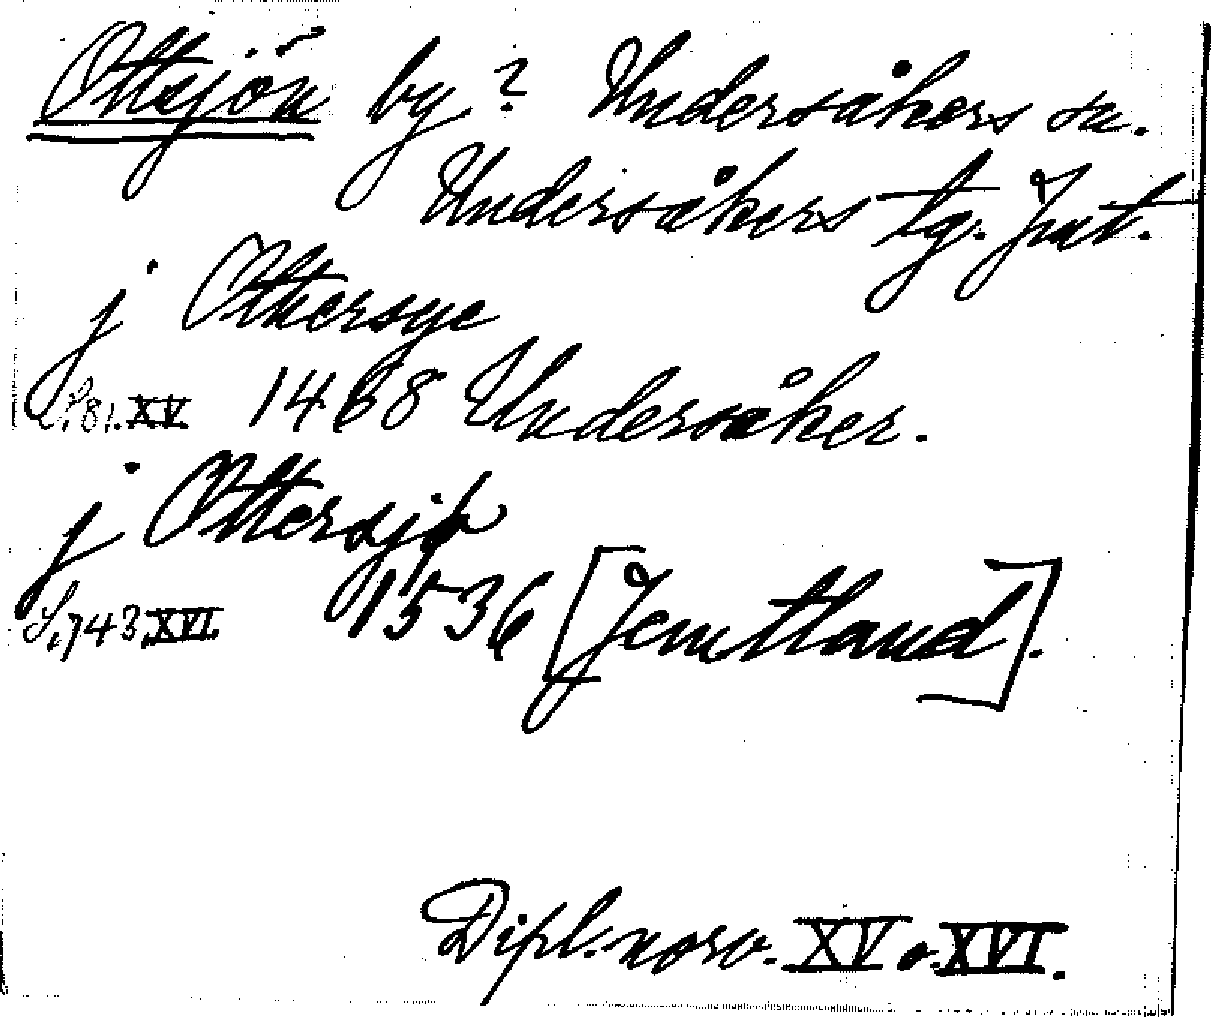 Ottsjön by? Undersåkers sn.
Undersåkers tg. Jmt.
j Ottersye
S. 81. XV. 1468 Undersåker.
j Ottersjø
S. 743 XVI. 1536 [Jemtland].
Dipl. norv. XV o. XVI.